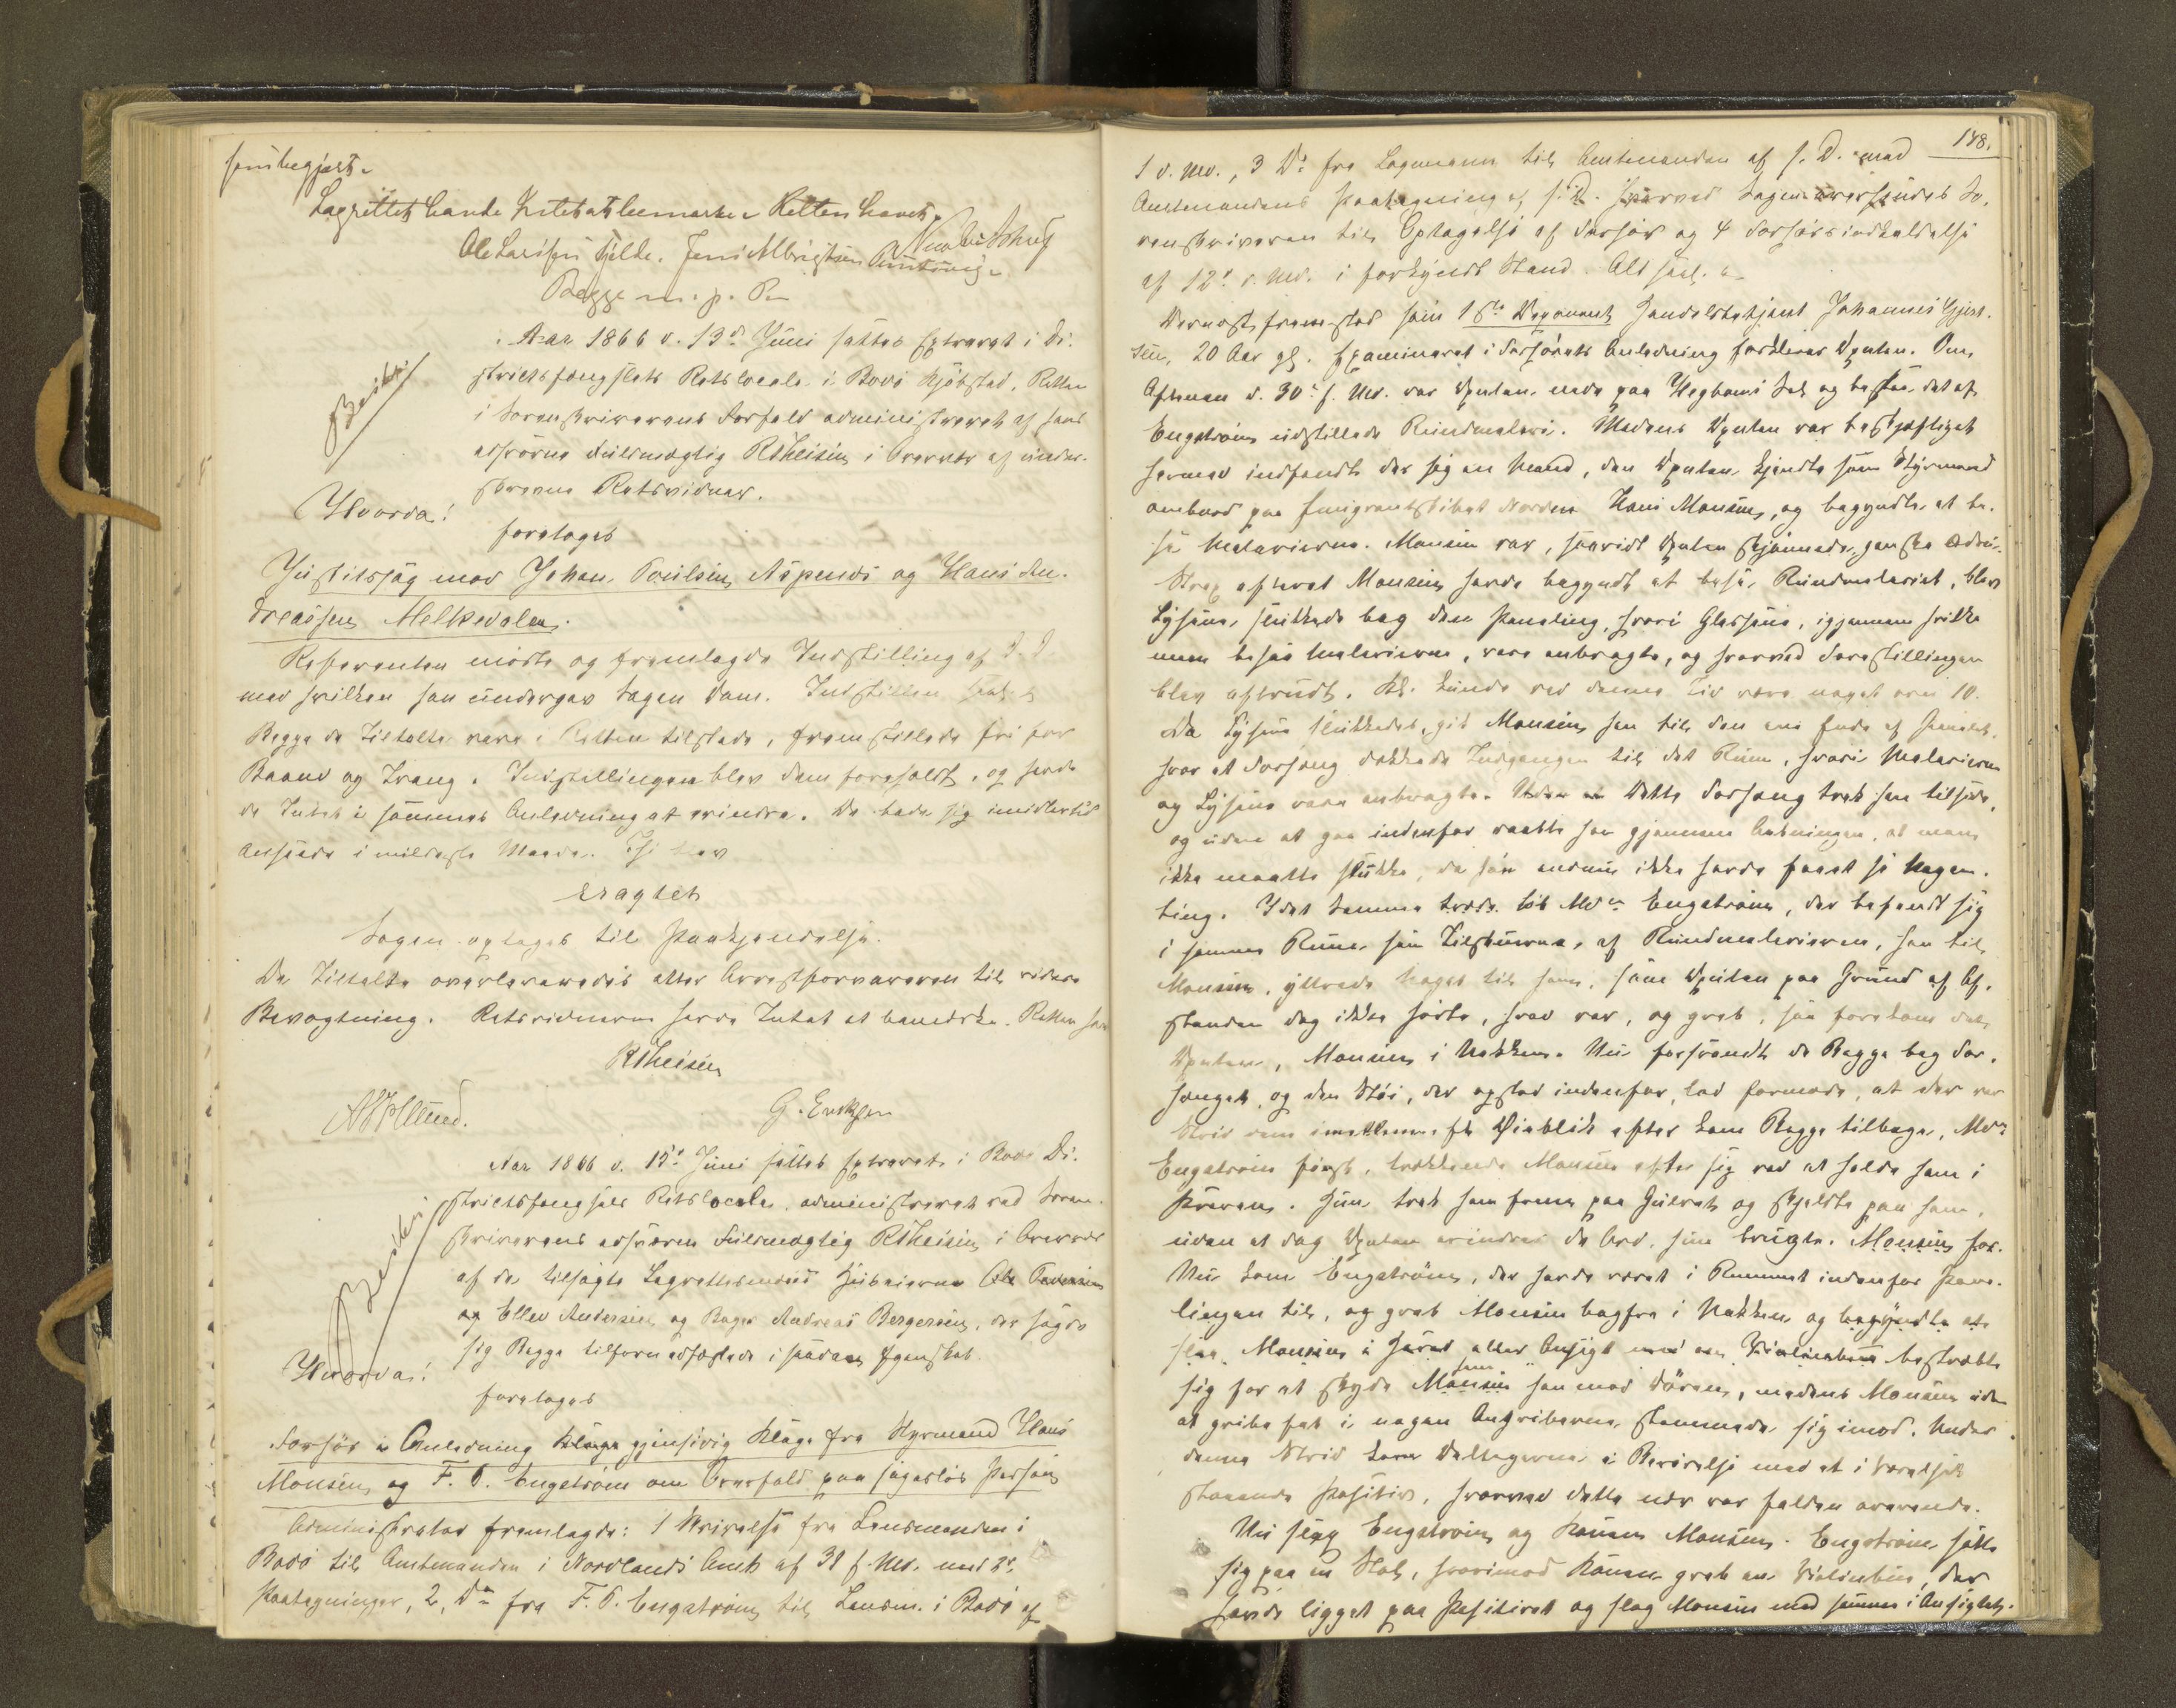 som begjært.
Lagrettet havde Intet at bemærke. Retten hævet.
Ole Larssen Fjelde. Jens Albrigtsen
Begge m. p. P.
Aar 1866 d. 13de Juni sattes Extraret i Di-
Beskr.
strictsfængslets Retslocale i Bodø Kjøbstad. Retten
i Sorenskriverens Forfald administreret af hans
edsvorne Fuldmægtig RTheisen i Overvær af under-
skrevne Retsvidner.
Hvorda!
foretoges
Justitssag mod Johan Poulsen Aspenes og Hans An-
dreassen Melkedalen.
Referenten mødte og fremlagde Indstilling af D. D.
med hvilken han undergav Sagen Dom. Indstillen
Begge de Tiltalte vare i Retten tilstede, fremstillede fri for
Baand og Tvang. Indstillingen blev dem foreholdt, og havde
de Intet i sammes Anledning at erindre. De bade sig imidlertid
anseede i mildeste Maade. Thi blev
eragtet
Sagen optages til Paakjendelse.
De Tiltalte overleveredes atter Arrestforvareren til videre
Bevogtning. Retsvidnerne havde Intet at bemærke. Retten hævet
RTheisen
G. Erichsen
Aar 1866 d. 15de Juni sattes Extraret i Bodø Di-
Beskr.
strictsfængsels Retslocale, administreret ved Soren-
skriverens edsvorne Fuldmægtig RTheisen i Overvær
af de tilsagte Lagrettesmænd Huseierne Ole
og Ellev Andersen og Bager Andreas Bergersen, der sagde
sig Begge tilforn edfæstede i saadan Egenskab.
Hvorda!
foretoges
Forhør i Anledning Klage gjensidig Klage fra Styrmand Hans
Monsen og F. T. Engstrøm om Overfald paa sagesløs Person
Administrator fremlagde: 1 Skrivelse fra Lensmanden i
Bodø til Amtmanden i Nordlands Amt af 31 f. Md. med 2de
Paategninger, 2, Do fra F. T. Engstrøm til Lensm. i Bodø af
148.
1 d. Md., 3 Do fra Lægmann til Amtmanden af s. D. med
Amtmandens Paategning af s. D. hvorved Sagen oversendes So-
renskriveren til Optagelse af Forhør og 4 Forhørsindkaldelse
af 12te d. Md. i forkyndt Stand. Alt saal.
Dernæst fremstod som 1ste Deponent Handelsbetjent Johannes Gjert-
sen, 20 Aar gl. Examineret i Forhørets Anledning forklarer Dpnten: Om
Aftenen d. 30te f. Md. var Dpnten nede paa Hegboms Sal og besaa det af
Engstrøm udstillede Rundmaleri. Medens Dpnten var beskjæftiget
hermed indfandt der sig en Mand, den Dpnten kjendte som Styrmand
ombord paa Emigrantskibet Norden Hans Monsen, og begyndte at be-
se Malerierne. Monsen var, saavidt Dpnten skjønnede, ganske ædru.
Strax efterat Monsen havde begyndt at bese Rundmaleriet, blev
Lysene slukkede bag den Paneling, hvori Glassene, igjennem hvilke
man besaa Malerierne, vare anbragte, og hvorved Forestillingen
blev afbrudt. Kl. kunde ved denne Tid være noget over 10.
Da Lysene slukkedes, gik Monsen hen til den ene Ende af Panelet,
hvor et Forhæng dækkede Indgangen til det Rum, hvori Malerierne
og Lysene vare anbragte. Dette Forhæng trak han tilside,
og uden at gaa indenfor raabte han gjennem Aabningen, at man
ikke maatte slukke, da han endnu ikke havde faaet se Nogen-
ting. I det samme løb Mdm Engstrøm, der befandt sig
i samme Rum som Tilskuerne, af Rundmalerierne, hen til
Monsen, yttrede Noget til ham, som Dpnten paa Grund af Af-
standen dog ikke hørte, hvad var, og greb, saa forekom det
Dpnten, Monsen i Nakken. Nu forsvandt de Begge bag For-
hænget, og den Støi, der opstod indenfor, lod formode, at der var
Strid dem imellem. Et Øieblik efter kom Begge tilbage, Mdm
Engstrøm først, trækkende Monsen efter sig ved at holde ham i
Kraven. Hun trak ham frem paa Gulvet og skjeldte paa ham,
uden at dog Dpnten erindrer de Ord, hun brugte. Monsen for-
Nu kom Engstrøm, der havde været i Rummet indenfor Pane-
lingen til, og greb Monsen bagfra i Nakken og begyndte at
slaa Monsen i Haaret eller Ansigt med en Violinbue bestræbte
sig for at skyde Monsen hen mod Døren, medens Monsen uden
at gribe fat i nogen Angriberne stemmede sig imod. Under
denne Strid kom Deltagerne i Berørelse med et i Værelset
staaende Positiv, hvorved dette nær var falden overende.
Nu slap Engstrøm og Konen Monsen. Engstrøm satte
sig paa en Stol, hvorimod Konen greb en Violinbue, der
havde ligget paa Positivet og slog Monsen med samme i Ansigtet.